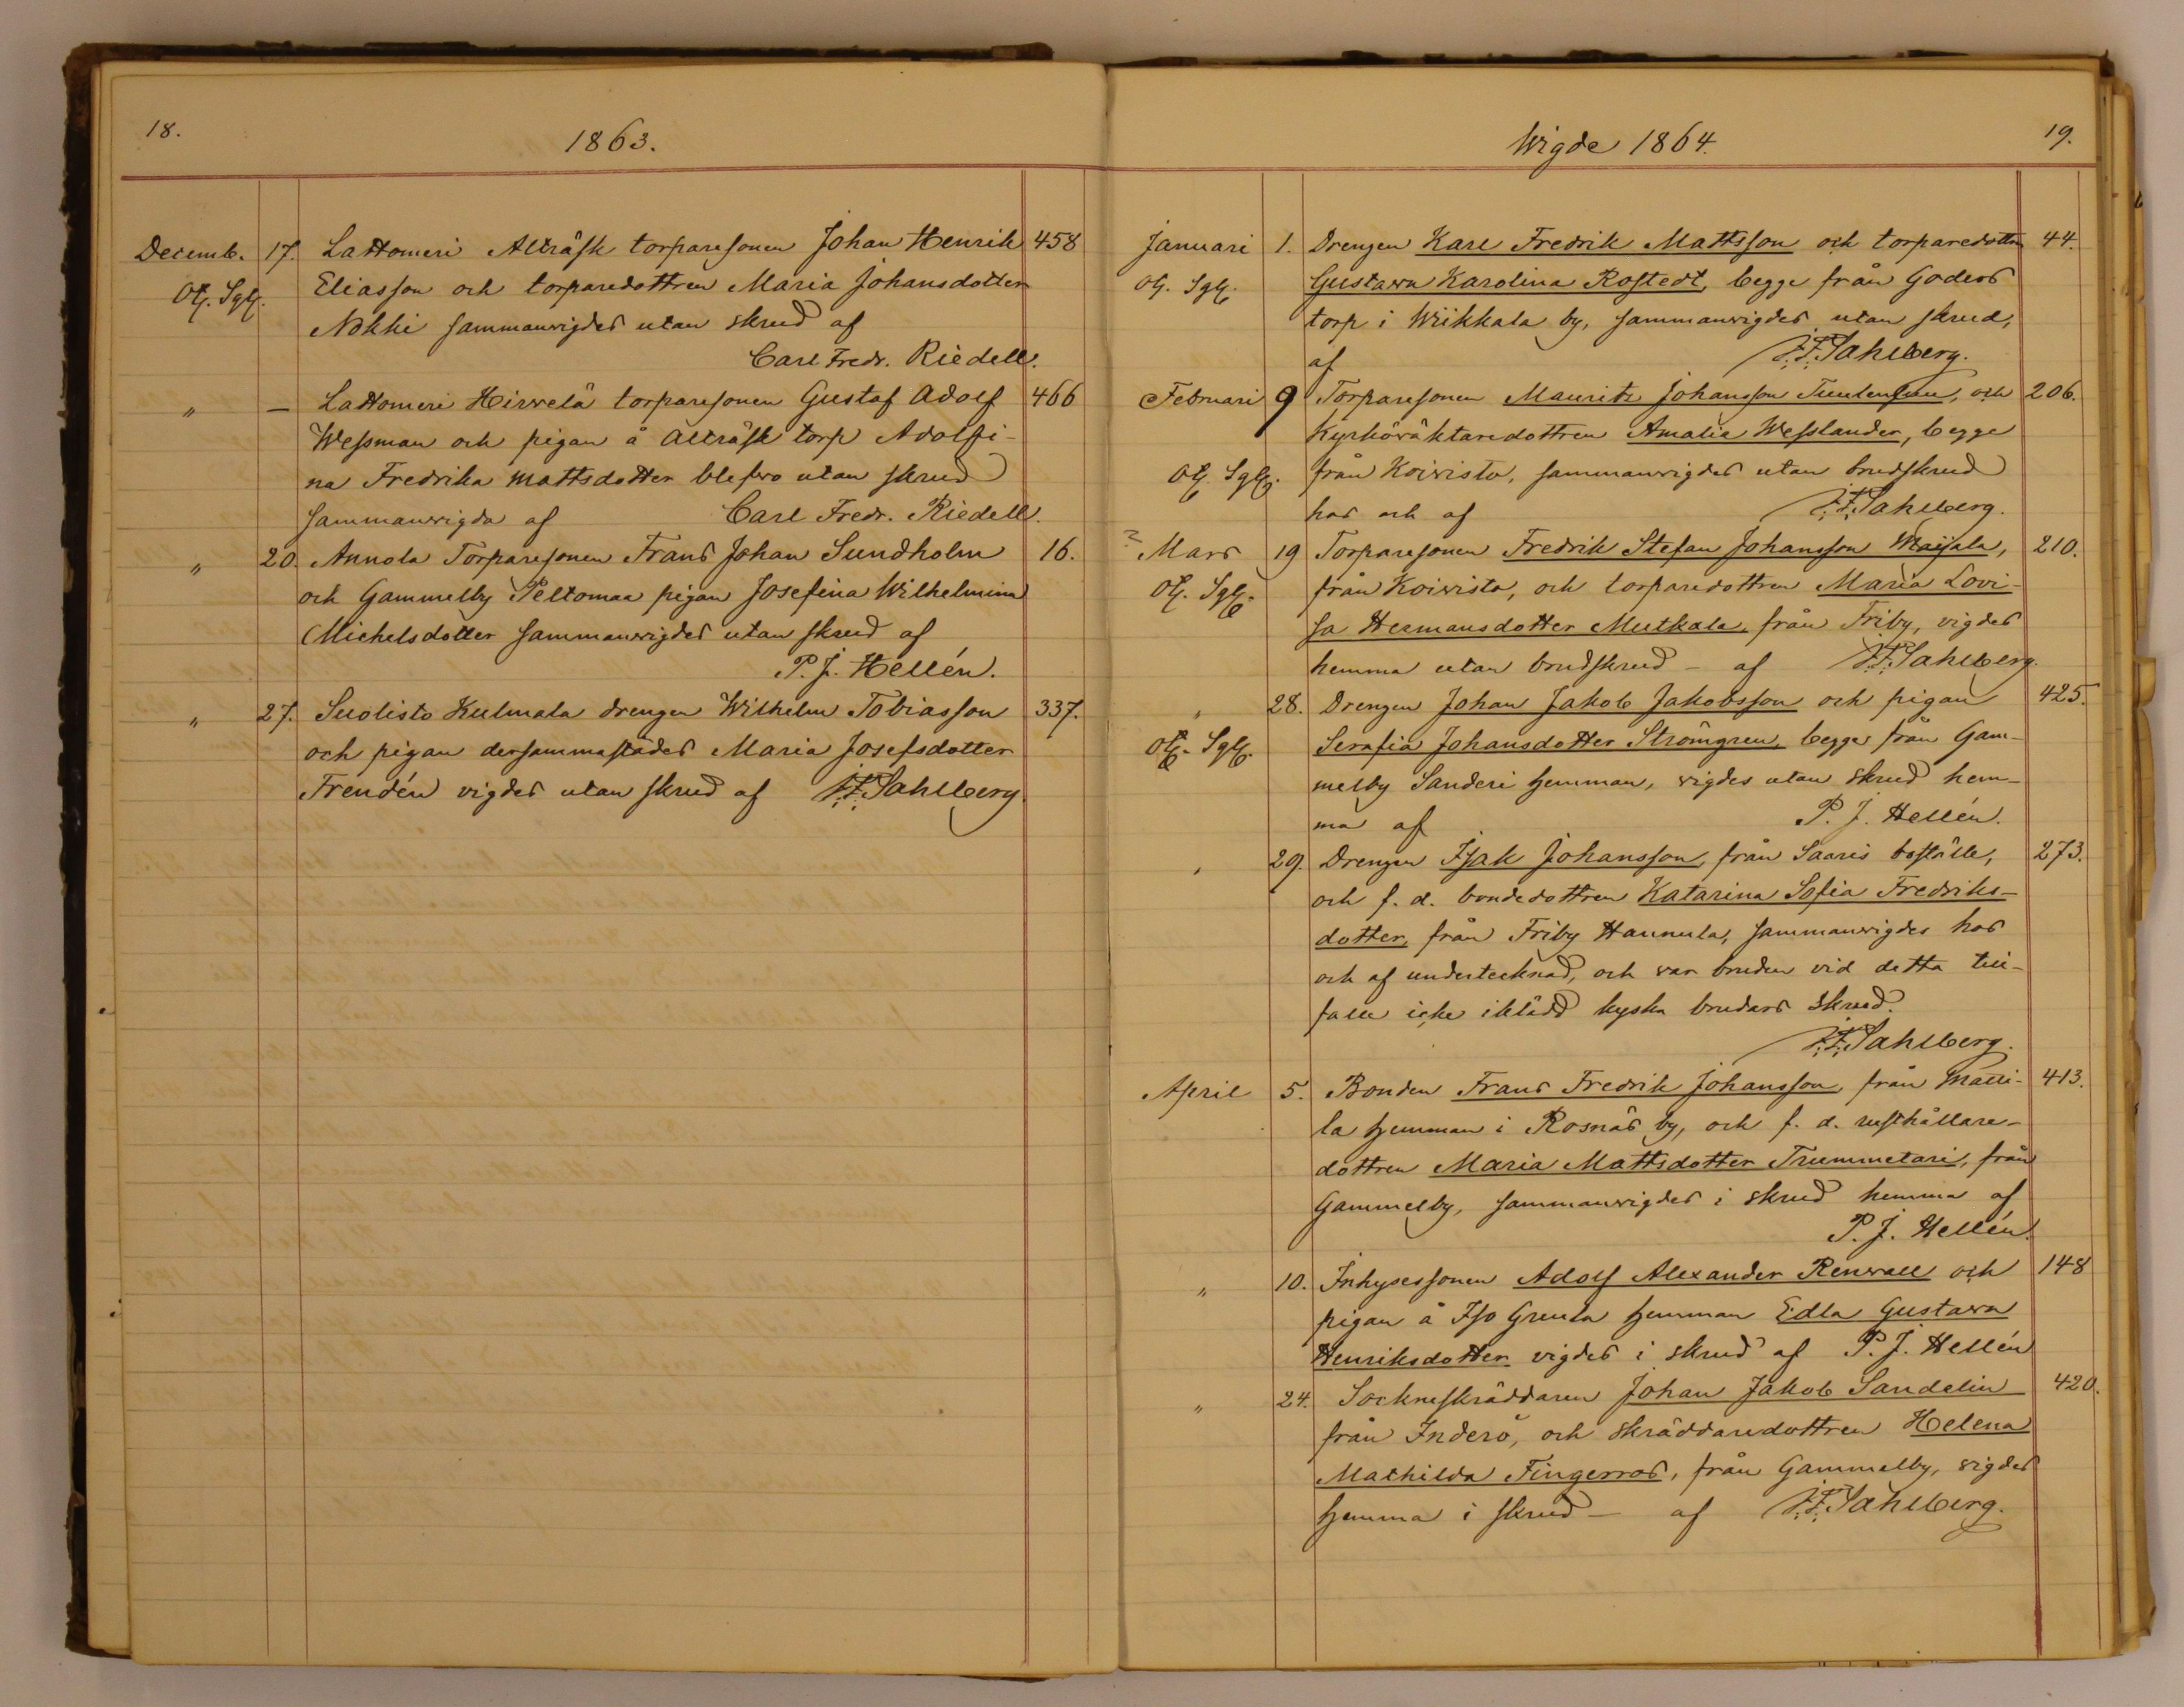 18.
1863.
Decemb. 17. Lattomeri Alträsk torparesonen Johan Henrik 458
Eliasson och torparedottren Maria Johansdotter
Nokki sammanvigdes utan skrud af
Carl Fredr. Riedell.
" — Lattomeri Hirvelä torparesonen Gustaf Adolf 466
Wessman och pigan å Alträsk torp Adolfi-
na Fredrika Mattsdotter blefvo utan skrud
sammanvigda af Carl Fredr. Riedell.
" 20. Annola Torparesonen Frans Johan Sundholm 16.
och Gammelby Peltomaa pigan Josefina Wilhelmina
Michelsdotter sammanvigdes utan skrud af
P. J. Hellén.
" 27. Suolisto Kulmala drengen Wilhelm Tobiasson 337.
och pigan dersammastädes Maria Josefsdotter
Frendén vigdes utan skrud af F. F. Sahlberg
Wigde 1864.
19.
Januari 1. Drengen Karl Fredrik Mattsson och torparedottren 44.
Gustava Karolina Rostedt, begge från Goders
torp i Wiikkala by, sammanvigdes utan skrud,
af F. F. Sahlberg.
Februari 9 Torparesonen Mauritz Johansson och 206.
Kyrkoväktaredottren Amalia Wesslander, begge
från Koivisto, sammanvigdes utan brudskrud
hos och af F. F. Sahlberg.
? Mars 19 Torparesonen Fredrik Stefan Johansson Maijala, 210.
från Koivisto, och torparedottren Maria Lovi-
sa Hermansdotter Mutkala, från Friby, vigdes
hemma utan brudskrud – af F. F. Sahlberg.
" 28. Drengen Johan Jakob Jakobsson och pigan 425.
Serafia Johansdotter Strömgren, begge från Gam-
melby Sanderi hemman, vigdes utan skrud hem-
ma af P. J. Hellén.
" 29. Drengen Isak Johansson, från Saaris boställe, 273.
och f. d. bondedottren Katarina Sofia Fredriks-
dotter, från Friby Hannula, sammanvigdes hos
och af undertecknad, och var bruden vid detta till-
falle icke iklädd kyska brudars skrud.
F. F. Sahlberg.
April 5. Bonden Frans Fredrik Johansson, från Matti- 413.
la hemman i Rosnäs by, och f. d. rusthållare-
dottren Maria Mattsdotter Trummetari, från
Gammelby, sammanvigdes i skrud hemma af
P. J. Hellén.
" 10. Inhysessonen Adolf Alexander Renvall och 148
pigan å Iso Gruula hemman Edla Gustava
Henriksdotter vigdes i skrud af P. J. Hellén
" 24. Sockneskräddaren Johan Jakob Sandelin 420.
från Inderö, och skräddaredottren Helena
Mathilda Fingerroos, från Gammelby, vigdes
hemma i skrud – af F. F. Sahlberg.